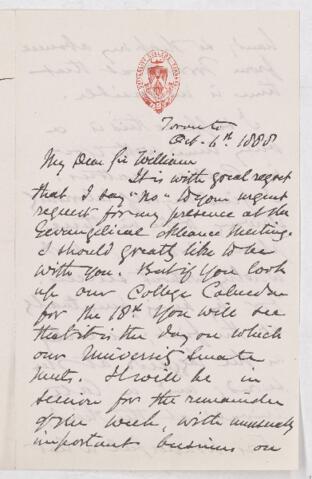 Toronto
Oct. 6th 1888
My Dear Sir William
It is with great regret
that I say "no" to your urgent
request for my presence at the
Evangelical Alliance Meeting.
I should greatly like to be
with you. But if you look
up our College Calendar
for the 18th you will see
that it is the day on which
our University Senate
meets. It will be in
session for the remainder
of the week, with unusually
important business on